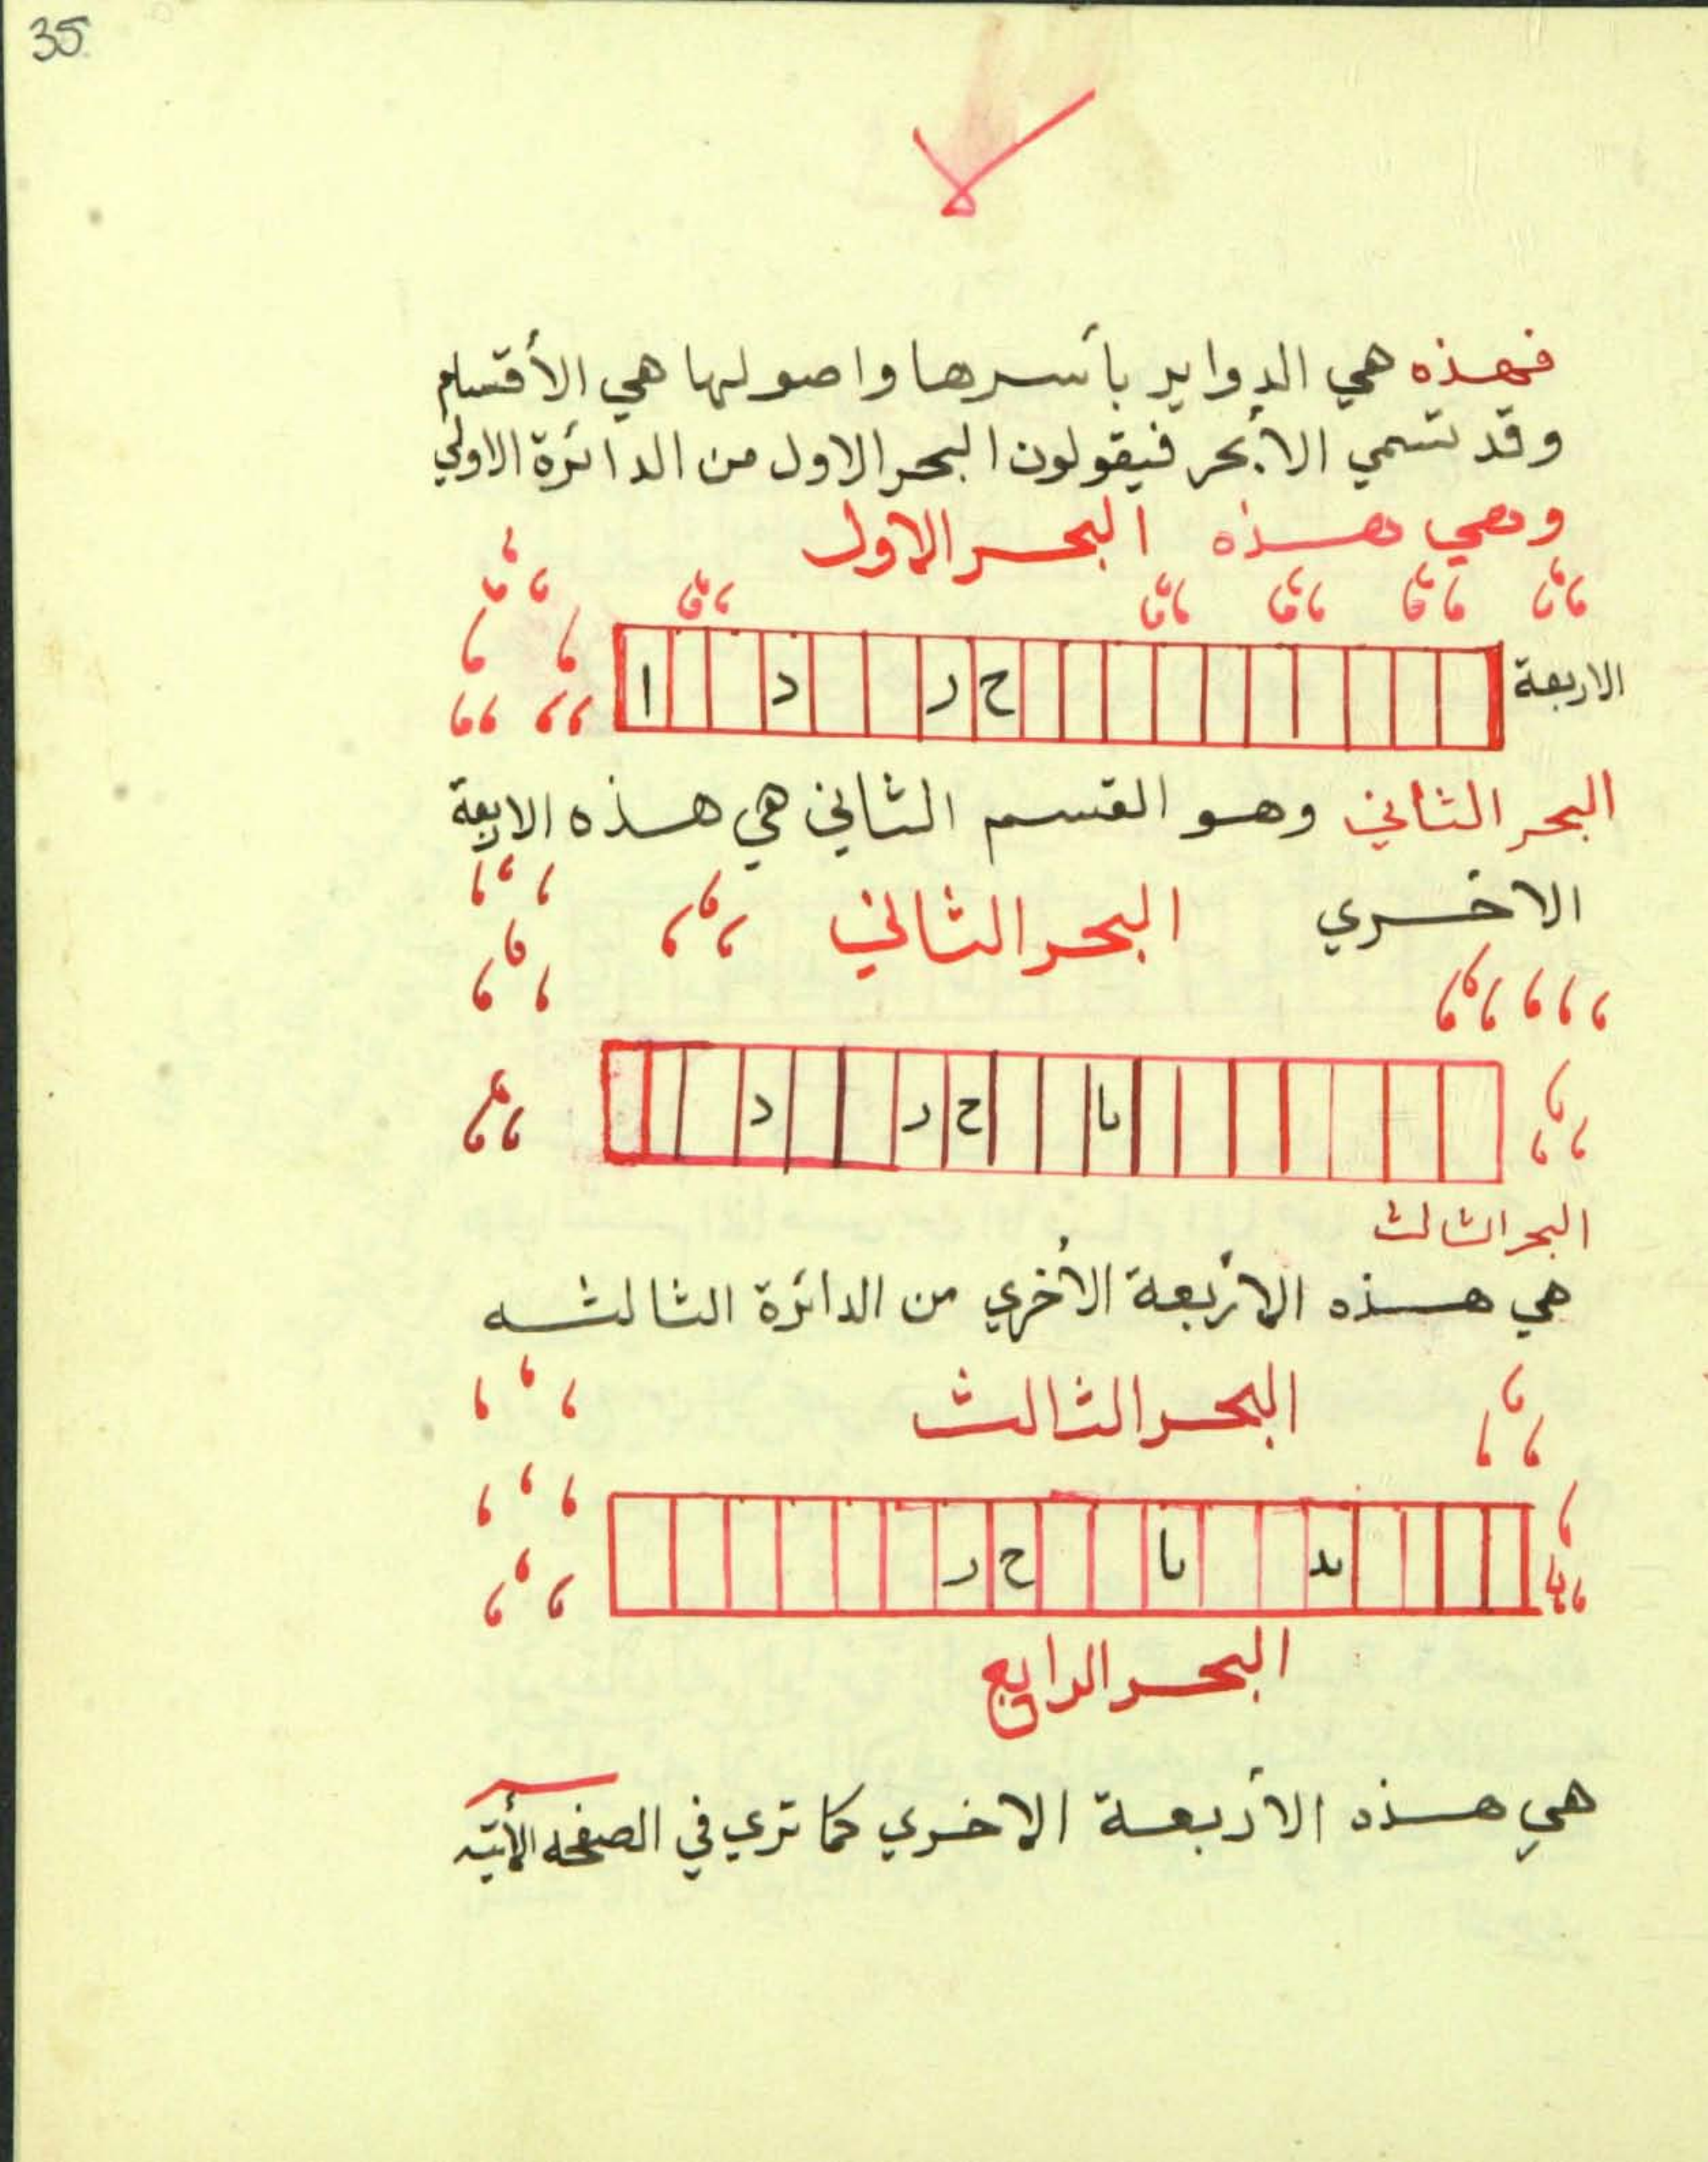 35
فهذه هي الدواير بأسرها واصولها هي الأقسام
وقد تسمي الأبحر فيقولون البحر الاول من الدائرة الاولي
وهي هذه البحر الاول
الاربعة
ا د ر ح
البحر الثاني وهو القسم الثاني هي هذه الاربعة
الاخري البحر الثاني
د ر ح يا
البحر الثالث
هي هذه الأربعة الأخري من الدائرة الثالثه
البحر الثالث
ر ح يا يد
البحر الرابع
هي هذه الأربعة الاخري كما تري في الصفحه الأتيه